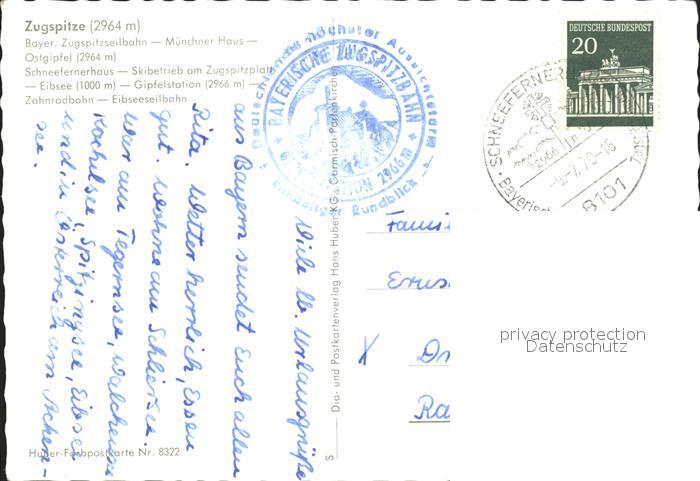 Zugspitze (2964 m)
Bayer. Zugspitzseilbahn — Münchner Haus —
Ostgipfel (2964 m)
Schneefernerhaus — Skibetrieb am Zugspitzplatt
— Eibsee (1000 m) — Gipfelstation (2966 m) —
Zahnradbahn — Eibseeseilbahn
Deutschlands höchster Aussichtsturm
BAYERISCHE ZUGSPITZBAHN
STATION 2966m
Einmaliger Rundblick
DEUTSCHE BUNDESPOST
20
SCHNEEFERNER
2966
-9.7.70-16
Bayerisch
8101
Viele lb. Urlaubsgrüße
aus Bayern sendet Euch allen
Rita. Wetter herrlich, Essen
gut. Wohne am Schliersee.
War am Tegernsee, Walchensee
Kochelsee, Spitzingsee, Eibsee
und in Österreich am Achen-
see.
Dia- und Postkartenverlag Hans Huber KG · Garmisch-Partenkirchen
S
Fami
X Dr
Ra
privacy protection
Datenschutz
Huber-Farbpostkarte Nr. 8322